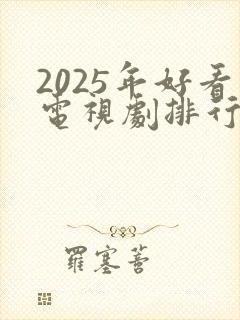 2025年好看
電視劇排行
羅塞菩